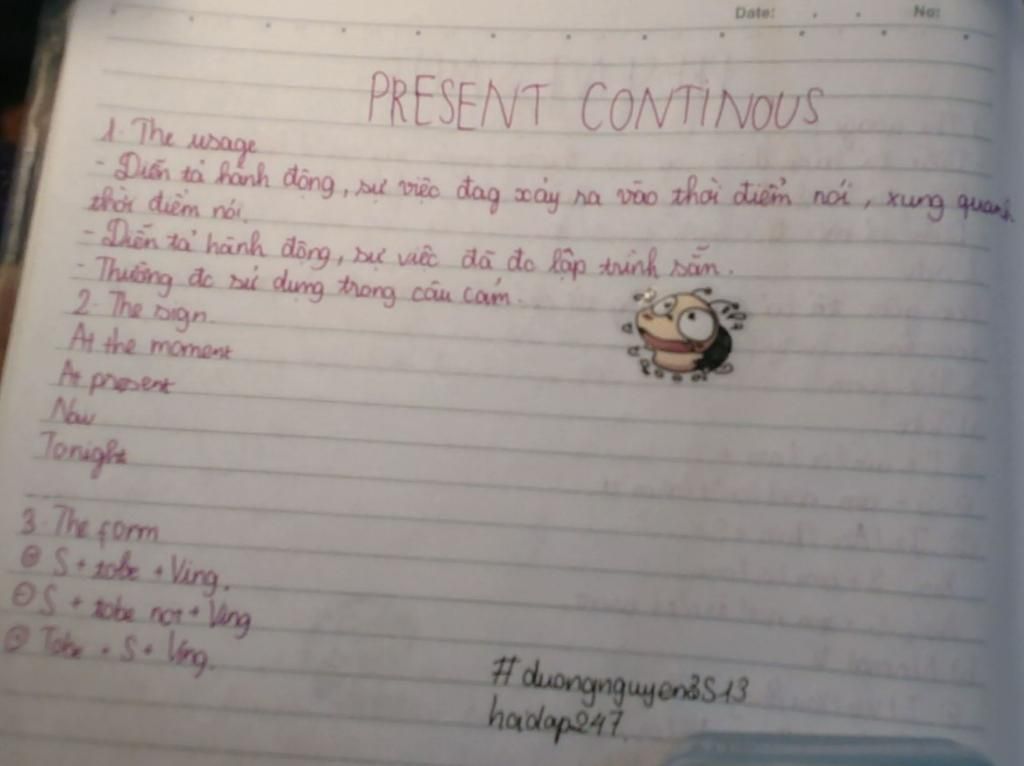 Date: . . No:
PRESENT CONTINOUS
1. The usage
- Diễn tả hành động, sự việc đag xảy ra vào thời điểm nói, xung quanh
thời điểm nói
- Diễn tả hành động, sự việc đã đc lập trình sẵn.
- Thường đc sử dụng trong câu cảm.
2. The sign
At the moment
At present
Now
Tonight
3. The form
⊕ S + tobe + Ving.
⊖ S + tobe not + Ving
? Tobe + S + Ving.
#duongnguyen3513
hoidap247